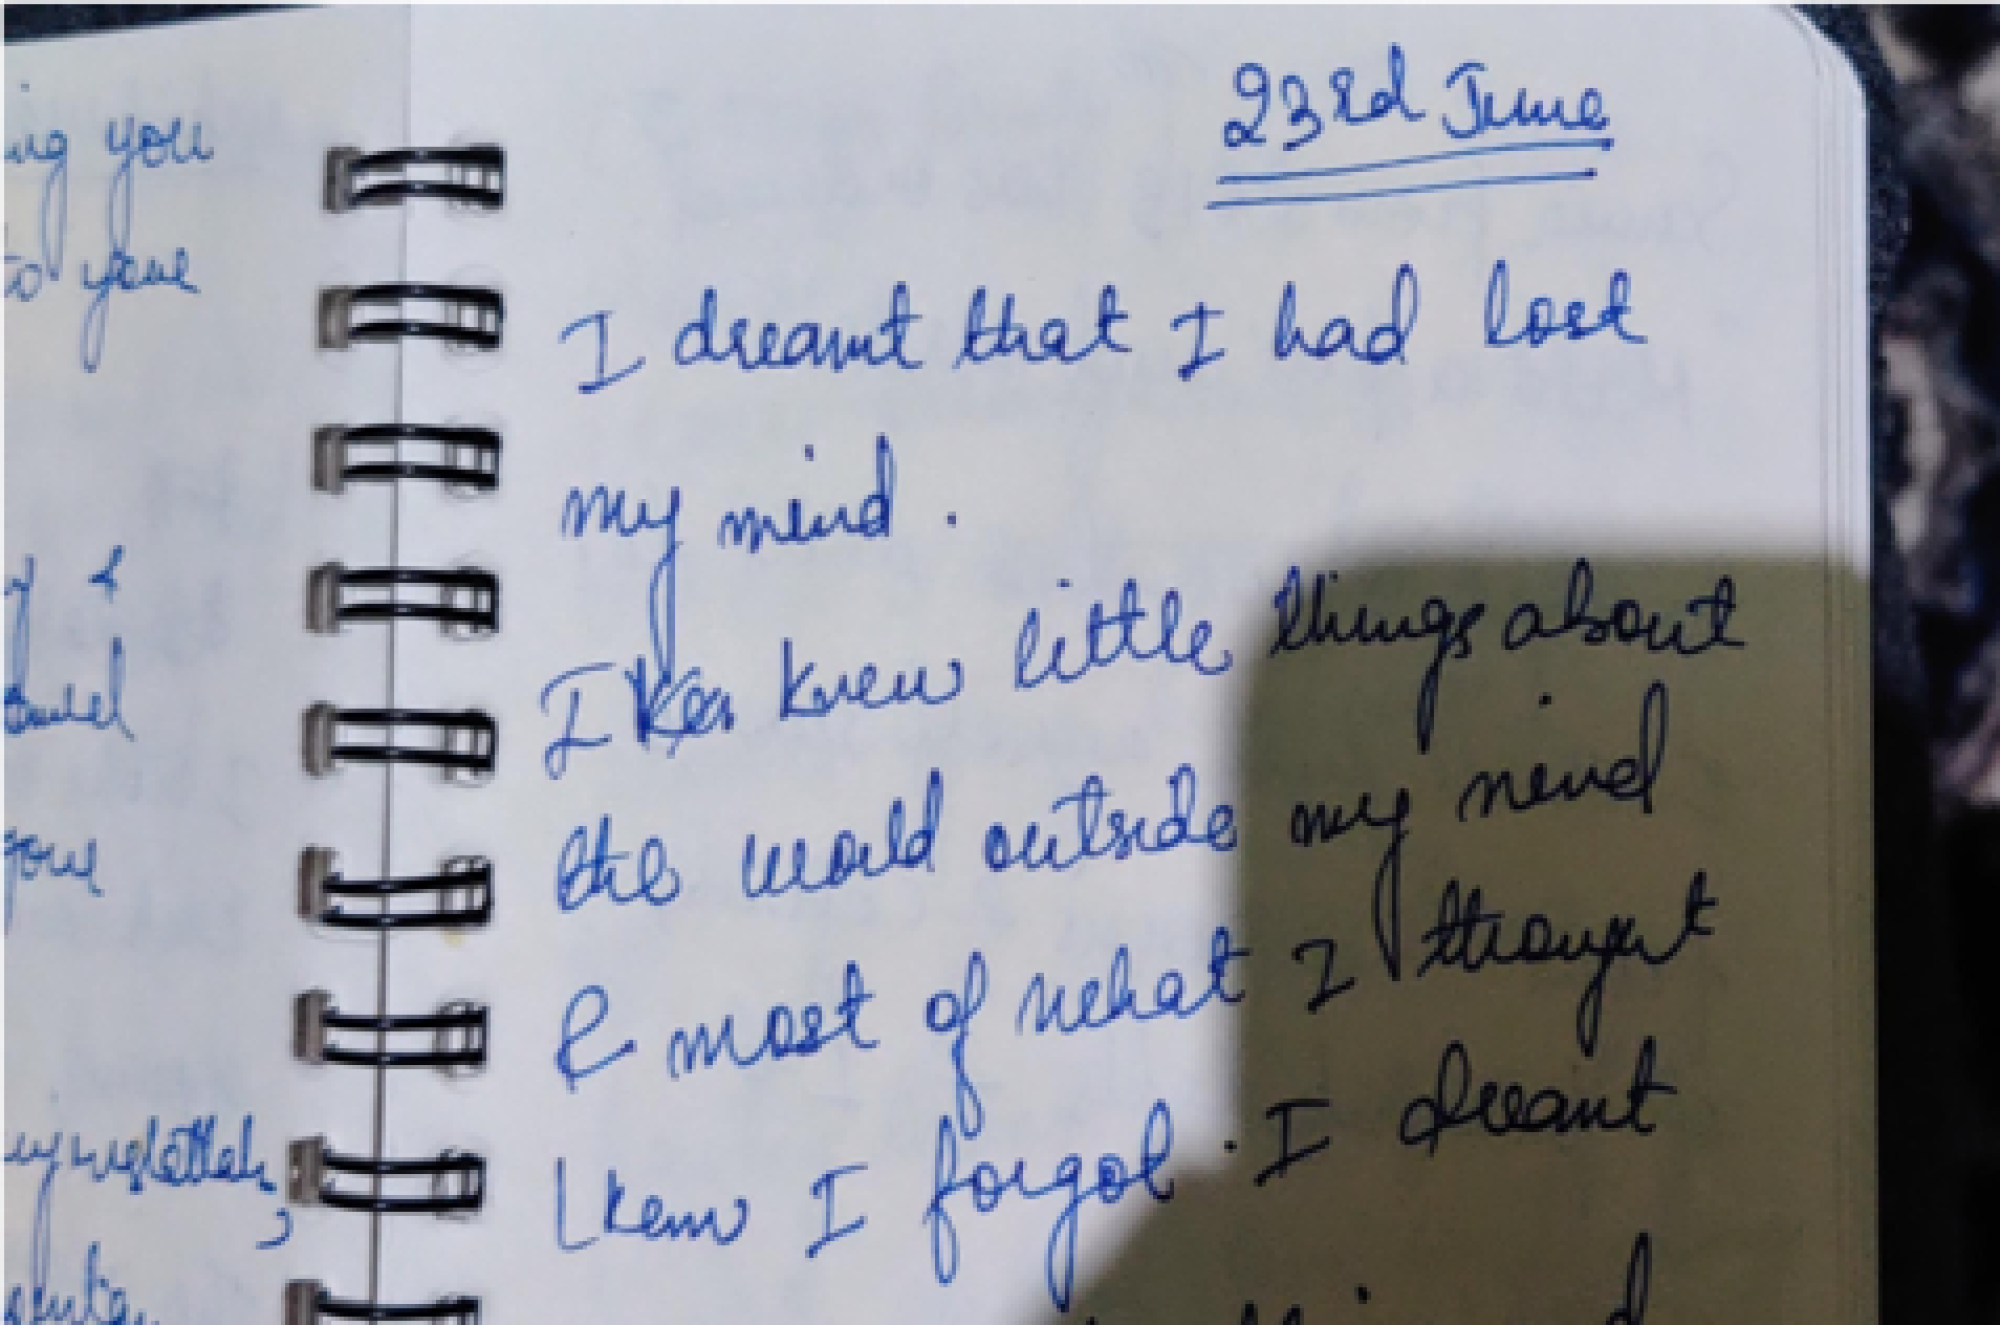 ing you
to your
23rd June
I dreamt that I had lost
my mind.
I knew little things about
the world outside my mind
& most of what I thought
I knew I forgot. I dreamt